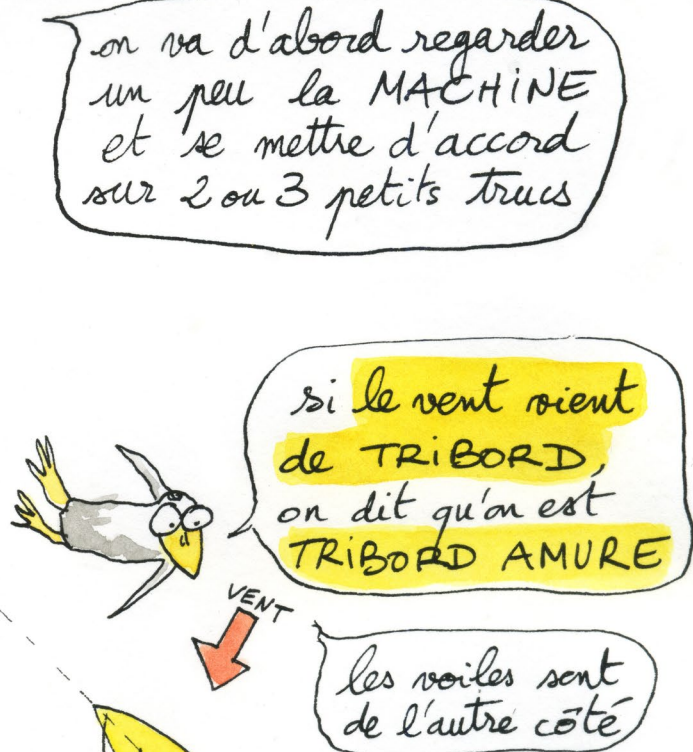 on va d'abord regarder
un peu la MACHiNE
et se mettre d'accord
sur 2 ou 3 petits trucs
si le vent vient
de TRiBORD,
on dit qu'on est
TRiBORD AMURE
VENT
les voiles sont
de l'autre côté